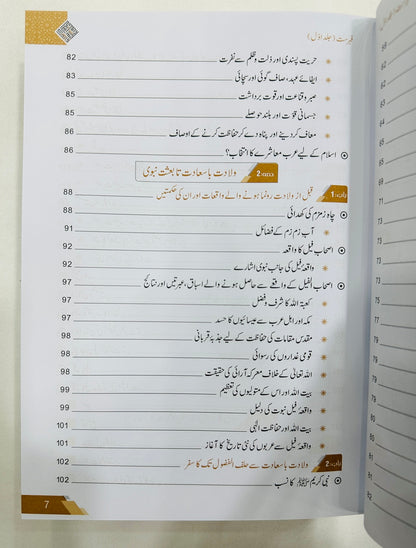 فہرست (جلد اوّل)
حریت پسندی اور ذلت و ظلم سے نفرت 82
ایفائے عہد، صاف گوئی اور سچائی 82
صبر و قناعت اور قوت برداشت 85
جسمانی قوّت اور بلند حوصلے 85
معاف کر دینے اور پناہ دے کر حفاظت کرنے کے اوصاف 86
اسلام کے لیے عرب معاشرے کا انتخاب؟ 86
حصہ: 2 ولادت باسعادت تا بعثت نبوی
باب: 1 قبل از ولادت رونما ہونے والے واقعات اور ان کی حکمتیں 88
چاہ زمزم کی کھدائی 88
آب زم زم کے فضائل 91
اصحاب فیل کا واقعہ 92
واقعۂ فیل کی جانب نبوی اشارے 92
اصحاب الفیل کے واقعے سے حاصل ہونے والے اسباق، عبرتیں اور نتائج 97
کعبۃ اللہ کا شرف و فضل 97
مکہ اور اہل عرب سے عیسائیوں کا حسد 97
مقدس مقامات کی حفاظت کے لیے جذبۂ قربانی 98
قومی غداروں کی رسوائی 98
اللہ تعالیٰ کے خلاف معرکہ آرائی کی حقیقت 98
بیت اللہ اور اس کے متولیوں کی تعظیم 99
واقعۂ فیل نبوت کی دلیل 99
بیت اللہ اور حفاظت الٰہی 101
واقعۂ فیل سے عربوں کی نئی تاریخ کا آغاز 101
باب: 2 ولادت باسعادت سے حلف الفضول تک کا سفر 102
نبی کریم ﷺ کا نسب 102
7